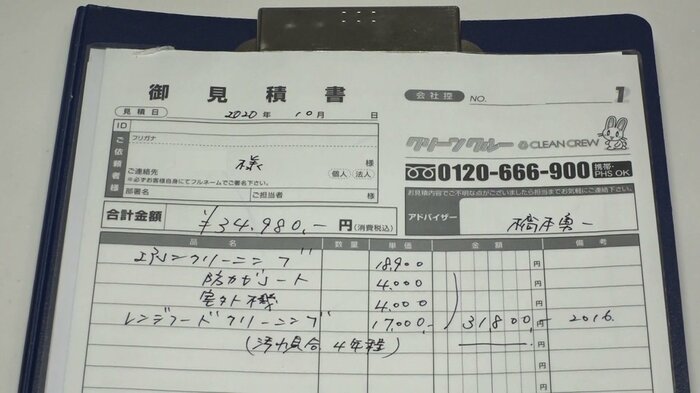 御見積書
会社控 NO. 1
見積日 2020年 10月 日
グリーンクルー CLEAN CREW
ID
フリガナ
ご依頼者様
様 様
個人 法人
ご連絡先
※必ずお客様自身にてフルネームでご署名下さい。
部署名 ご担当者 様
0120-666-900 携帯・PHS OK
お見積内容でご不明な点がございましたら担当までお気軽にご連絡下さい。
アドバイザー 橋本真一
合計金額 ¥34,980,- 円(消費税込)
品名 数量 単価 金額 備考
エアコンクリーニング 18,900 円
防カビコート 4,000 円
室外機 4,000 円
レンジフードクリーニング 17,000,- 31,800,- 円 2016.
(汚れ具合 4年程) 円
円